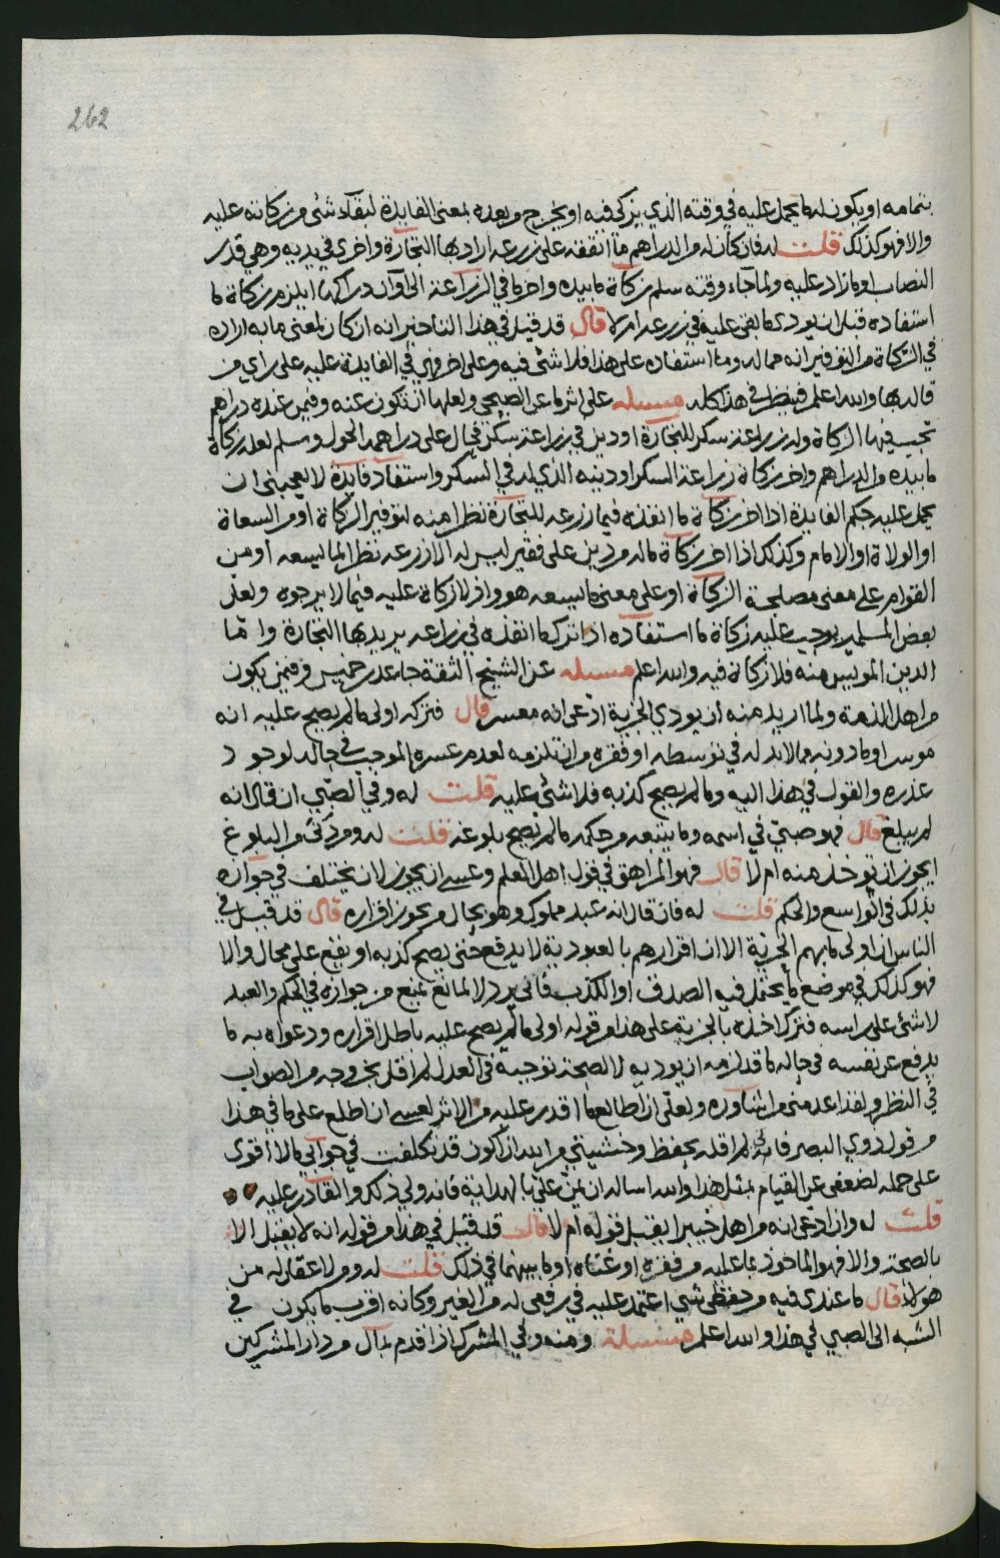 262
بتمامه او يكون له ما يحمل عليه في وقته الذي يزكى فيه او يخرج وبعده بمعنى الفايدة لبقاء شئ من زكاته عليه
والا فهو كذلك قلت له فان كان له من الدراهم ما انفقه على زرعه اراد بها التجارة واخرى في يديه وهي قدر
النصاب او ما زاد عليه ولما جاء وقته سلم زكاة ما بيده واخر ما في الزراعة الى اوان دراكها ايلزمه زكاة ما
استفاده قبل ان يودي ما بقي عليه في زرعه ام لا قال قد قيل في هذا التاخير انه ان كان لمعنى ما به اراده
في الزكاة من التوفير انه مما له وما استفاده على هذا فلا شئ فيه وعلى اخر فهي في الفايدة عليه على راي من
قاله بها والله اعلم فينظر في هذا كله مسئله على اثر ما عن الصبحي ولعلها ان تكون عنه وفيمن عنده دراهم
تجب فيها الزكاة وله زراعة سكر للتجارة او دين في زراعة سكر فحال على دراهمه الحول وسلم لعله زكاة
ما بيده من الدراهم واخر زكاة زراعة السكر او دينه الذي له في السكر واستفاد فايدة لا يعجبني ان
يحمل عليه حكم الفايدة اذا اخر زكاة ما انفذه فيما زرعه للتجارة نظرا منه لتوفير الزكاة او من السعاة
او الولاة او الامام وكذلك اذا اخر زكاة ماله من دين على فقير ليس له الا زرعه نظرا لما يسعه او من
القوام على معنى مصلحة الزكاة او على معنى ما يسعه هو واخر لا زكاة عليه فيما لا يرجوه ولعل
بعض المسلمين يوجب عليه زكاة ما استفاده اذا ترك ما انفذه في زراعه يريد بها التجارة واما
الدين الموييس منه فلا زكاة فيه والله اعلم مسئله عن الشيخ الثقة جاعد بن خميس وفيمن يكون
من اهل الذمة ولما اريد منه ان يودي الجزية ادعى انه معسر قال فتركه اولى ما لم يصح عليه انه
موسر او ما دونه مما لا بد له في توسطه او فقره من ان تلزمه لعدم عسره الموجب في حاله لوجود
عذره والقول في هذا اليه وما لم يصح كذبه فلا شئ عليه قلت له وفي الصبي ان قال انه
لم يبلغ قال فهو صبي في اسمه وما يتبعه من حكمه ما لم يصح بلوغه قلت له ومن دنى من البلوغ
ايجوز ان توخذ منه ام لا قال فهو المراهق في قول اهل العلم وعسى ان يجوز لان يختلف في جوازه
بذلك في الواسع والحكم قلت له فان قال انه عبد مملوك وهو بحال من يجوز اقراره قال قد قيل في
الناس ان اولى ما بهم الحرية الا ان اقرارهم بالعبودية لا يدفع حتى يصح كذبه او يقع على محال والا
فهو كذلك في موضع ما يحتمل فيه الصدق او الكذب فانى يرد لا لمانع يمنع من جوازه في الحكم والعبد
لا شئ على راسه فترك اخذه بالجزية على هذا من قوله اولى ما لم يصح عليه باطل اقراره ودعواه به ما
يدفع عن نفسه في حاله ما قد لزمه ان يوديه لا لصحة توجبه في العدل لم اقل بخروجه من الصواب
في النظر ولقد اعدمني من اشاوره ولعلي ان اطالع ما اقدر عليه من الاثر لعسى ان اطلع على ما في هذا
من قول ذوي البصر فاني لم اقله بحفظ وخشيتي من الله ان اكون قد تكلفت في جوابي ما لا اقوى
على حمله لضعفي عن القيام بمثل هذا والله اساله ان يمن علي بالهداية فانه ولي ذلك والقادر عليه
قلت له وان ادعى انه من اهل خيبر ايقبل قوله ام لا قال قد قيل في هذا من قوله انه لا يقبل الا
بالصحة والا فهو الماخوذ بما عليه من فقره او غناه او ما بينهما في ذلك قلت له ومن لا عقل له من
هولاء قال ما عندي فيه من حفظ شئ اعتمد عليه في رفعي له من الغير وكانه اقرب ما يكون في
الشبه الى الصبي في هذا والله اعلم مسئلة ومنه وفي المشرك اذا قدم بمال من دار المشركين